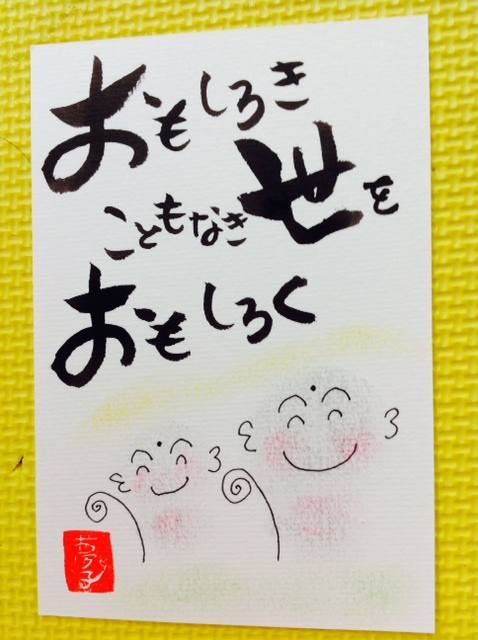 おもしろき
こともなき世を
おもしろく